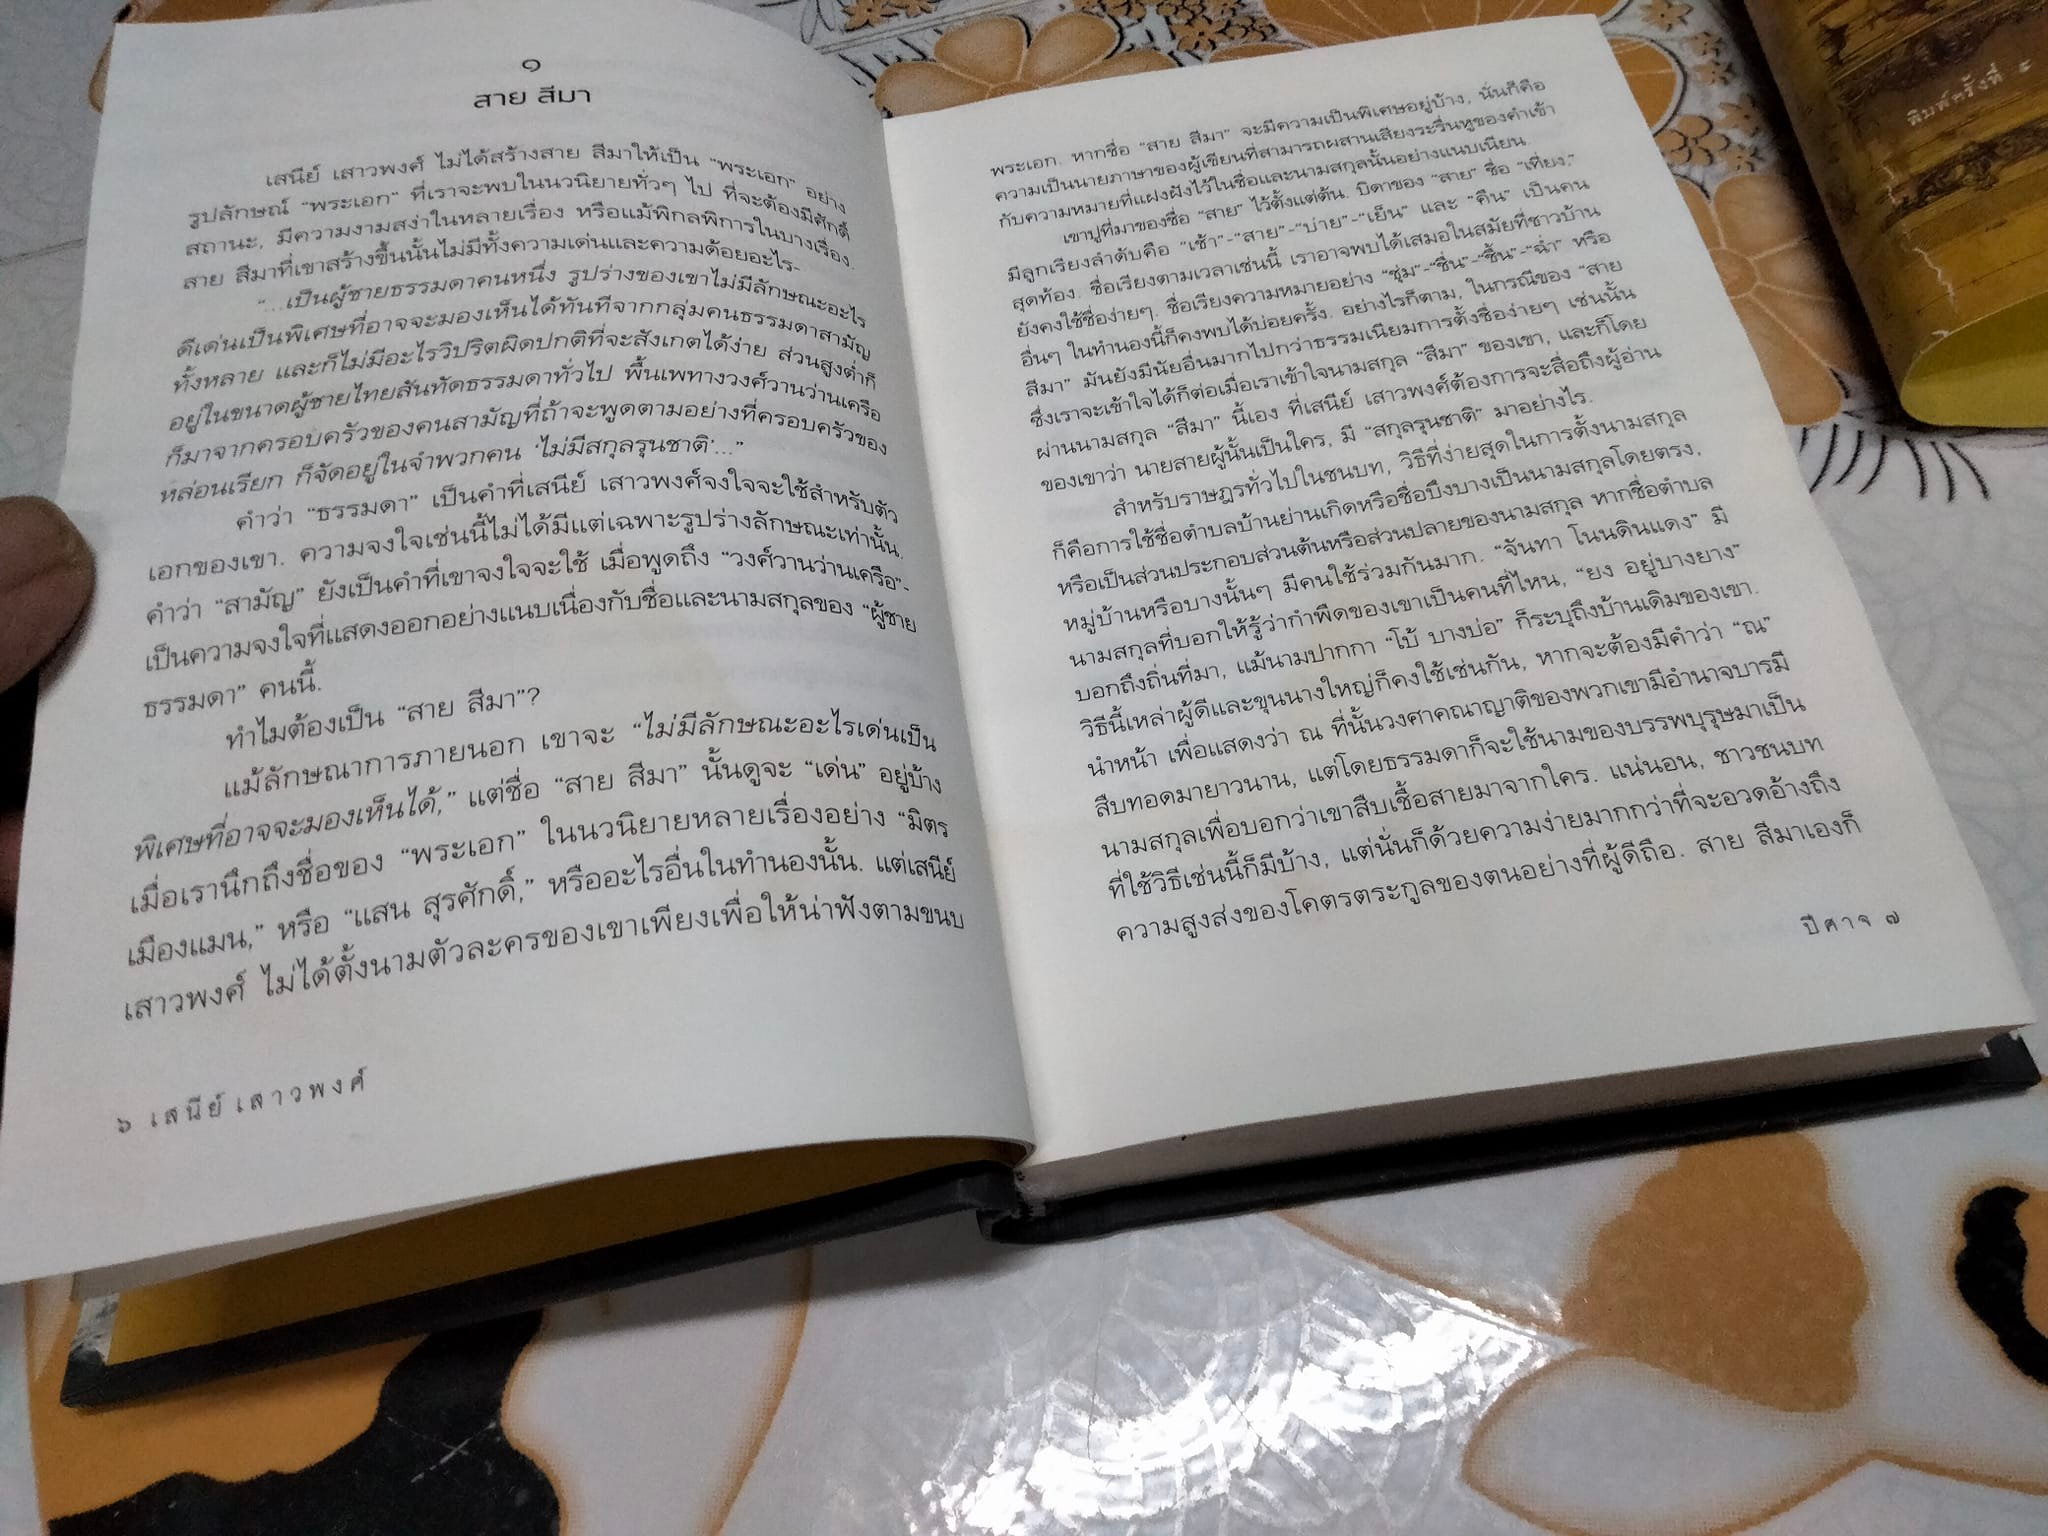 ๑
สาย สีมา
เสนีย์ เสาวพงศ์ ไม่ได้สร้างสาย สีมาให้เป็น “พระเอก” อย่าง
รูปลักษณ์ “พระเอก” ที่เราจะพบในนวนิยายทั่วๆ ไป ที่จะต้องมีศักดิ์
สถานะ, มีความงามสง่าในหลายเรื่อง หรือแม้พิกลพิการในบางเรื่อง.
สาย สีมาที่เขาสร้างขึ้นนั้นไม่มีทั้งความเด่นและความด้อยอะไร-
“...เป็นผู้ชายธรรมดาคนหนึ่ง รูปร่างของเขาไม่มีลักษณะอะไร
ดีเด่นเป็นพิเศษที่อาจจะมองเห็นได้ทันทีจากกลุ่มคนธรรมดาสามัญ
ทั้งหลาย และก็ไม่มีอะไรวิปริตผิดปกติที่จะสังเกตได้ง่าย ส่วนสูงต่ำก็
อยู่ในขนาดผู้ชายไทยสันทัดธรรมดาทั่วไป พื้นเพทางวงศ์วานว่านเครือ
ก็มาจากครอบครัวของคนสามัญที่ถ้าจะพูดตามอย่างที่ครอบครัวของ
หล่อนเรียก ก็จัดอยู่ในจำพวกคน ‘ไม่มีสกุลรุนชาติ’...”
คำว่า “ธรรมดา” เป็นคำที่เสนีย์ เสาวพงศ์จงใจจะใช้สำหรับตัว
เอกของเขา. ความจงใจเช่นนี้ไม่ได้มีแต่เฉพาะรูปร่างลักษณะเท่านั้น.
คำว่า “สามัญ” ยังเป็นคำที่เขาจงใจจะใช้ เมื่อพูดถึง “วงศ์วานว่านเครือ”-
เป็นความจงใจที่แสดงออกอย่างแนบเนื่องกับชื่อและนามสกุลของ “ผู้ชาย
ธรรมดา” คนนี้.
ทำไมต้องเป็น “สาย สีมา”?
แม้ลักษณาการภายนอก เขาจะ “ไม่มีลักษณะอะไรเด่นเป็น
พิเศษที่อาจจะมองเห็นได้,” แต่ชื่อ “สาย สีมา” นั้นดูจะ “เด่น” อยู่บ้าง
เมื่อเรานึกถึงชื่อของ “พระเอก” ในนวนิยายหลายเรื่องอย่าง “มิตร
เมืองแมน,” หรือ “แสน สุรศักดิ์,” หรืออะไรอื่นในทำนองนั้น. แต่เสนีย์
เสาวพงศ์ ไม่ได้ตั้งนามตัวละครของเขาเพียงเพื่อให้น่าฟังตามขนบ
๖ เสนีย์ เสาวพงศ์
พระเอก. หากชื่อ “สาย สีมา” จะมีความเป็นพิเศษอยู่บ้าง, นั่นก็คือ
ความเป็นนายภาษาของผู้เขียนที่สามารถผสานเสียงระรื่นหูของคำเข้า
กับความหมายที่แฝงฝังไว้ในชื่อและนามสกุลนั้นอย่างแนบเนียน.
เขาปูที่มาของชื่อ “สาย” ไว้ตั้งแต่ต้น. บิดาของ “สาย” ชื่อ “เที่ยง.”
มีลูกเรียงลำดับคือ “เช้า”-“สาย”-“บ่าย”-“เย็น” และ “คืน” เป็นคน
สุดท้อง. ชื่อเรียงตามเวลาเช่นนี้ เราอาจพบได้เสมอในสมัยที่ชาวบ้าน
ยังคงใช้ชื่อง่ายๆ. ชื่อเรียงความหมายอย่าง “ชุ่ม”-“ชื่น”-“ชื้น”-“ฉ่ำ” หรือ
อื่นๆ ในทำนองนี้ก็คงพบได้บ่อยครั้ง. อย่างไรก็ตาม, ในกรณีของ “สาย
สีมา” มันยังมีนัยอื่นมากไปกว่าธรรมเนียมการตั้งชื่อง่ายๆ เช่นนั้น
ซึ่งเราจะเข้าใจได้ก็ต่อเมื่อเราเข้าใจนามสกุล “สีมา” ของเขา, และก็โดย
ผ่านนามสกุล “สีมา” นี้เอง ที่เสนีย์ เสาวพงศ์ต้องการจะสื่อถึงผู้อ่าน
ของเขาว่า นายสายผู้นั้นเป็นใคร, มี “สกุลรุนชาติ” มาอย่างไร.
สำหรับราษฎรทั่วไปในชนบท, วิธีที่ง่ายสุดในการตั้งนามสกุล
ก็คือการใช้ชื่อตำบลบ้านย่านเกิดหรือชื่อบึงบางเป็นนามสกุลโดยตรง,
หรือเป็นส่วนประกอบส่วนต้นหรือส่วนปลายของนามสกุล หากชื่อตำบล
หมู่บ้านหรือบางนั้นๆ มีคนใช้ร่วมกันมาก. “จันทา โนนดินแดง” มี
นามสกุลที่บอกให้รู้ว่ากำพืดของเขาเป็นคนที่ไหน, “ยง อยู่บางยาง”
บอกถึงถิ่นที่มา, แม้นามปากกา “โบ้ บางบ่อ” ก็ระบุถึงบ้านเดิมของเขา.
วิธีนี้เหล่าผู้ดีและขุนนางใหญ่ก็คงใช้เช่นกัน, หากจะต้องมีคำว่า “ณ”
นำหน้า เพื่อแสดงว่า ณ ที่นั้นวงศาคณาญาติของพวกเขามีอำนาจบารมี
สืบทอดมายาวนาน, แต่โดยธรรมดาก็จะใช้นามของบรรพบุรุษมาเป็น
นามสกุลเพื่อบอกว่าเขาสืบเชื้อสายมาจากใคร. แน่นอน, ชาวชนบท
ที่ใช้วิธีเช่นนี้ก็มีบ้าง, แต่นั่นก็ด้วยความง่ายมากกว่าที่จะอวดอ้างถึง
ความสูงส่งของโคตรตระกูลของตนอย่างที่ผู้ดีถือ. สาย สีมาเองก็
ปีศาจ ๗
พิมพ์ครั้งที่ ๕